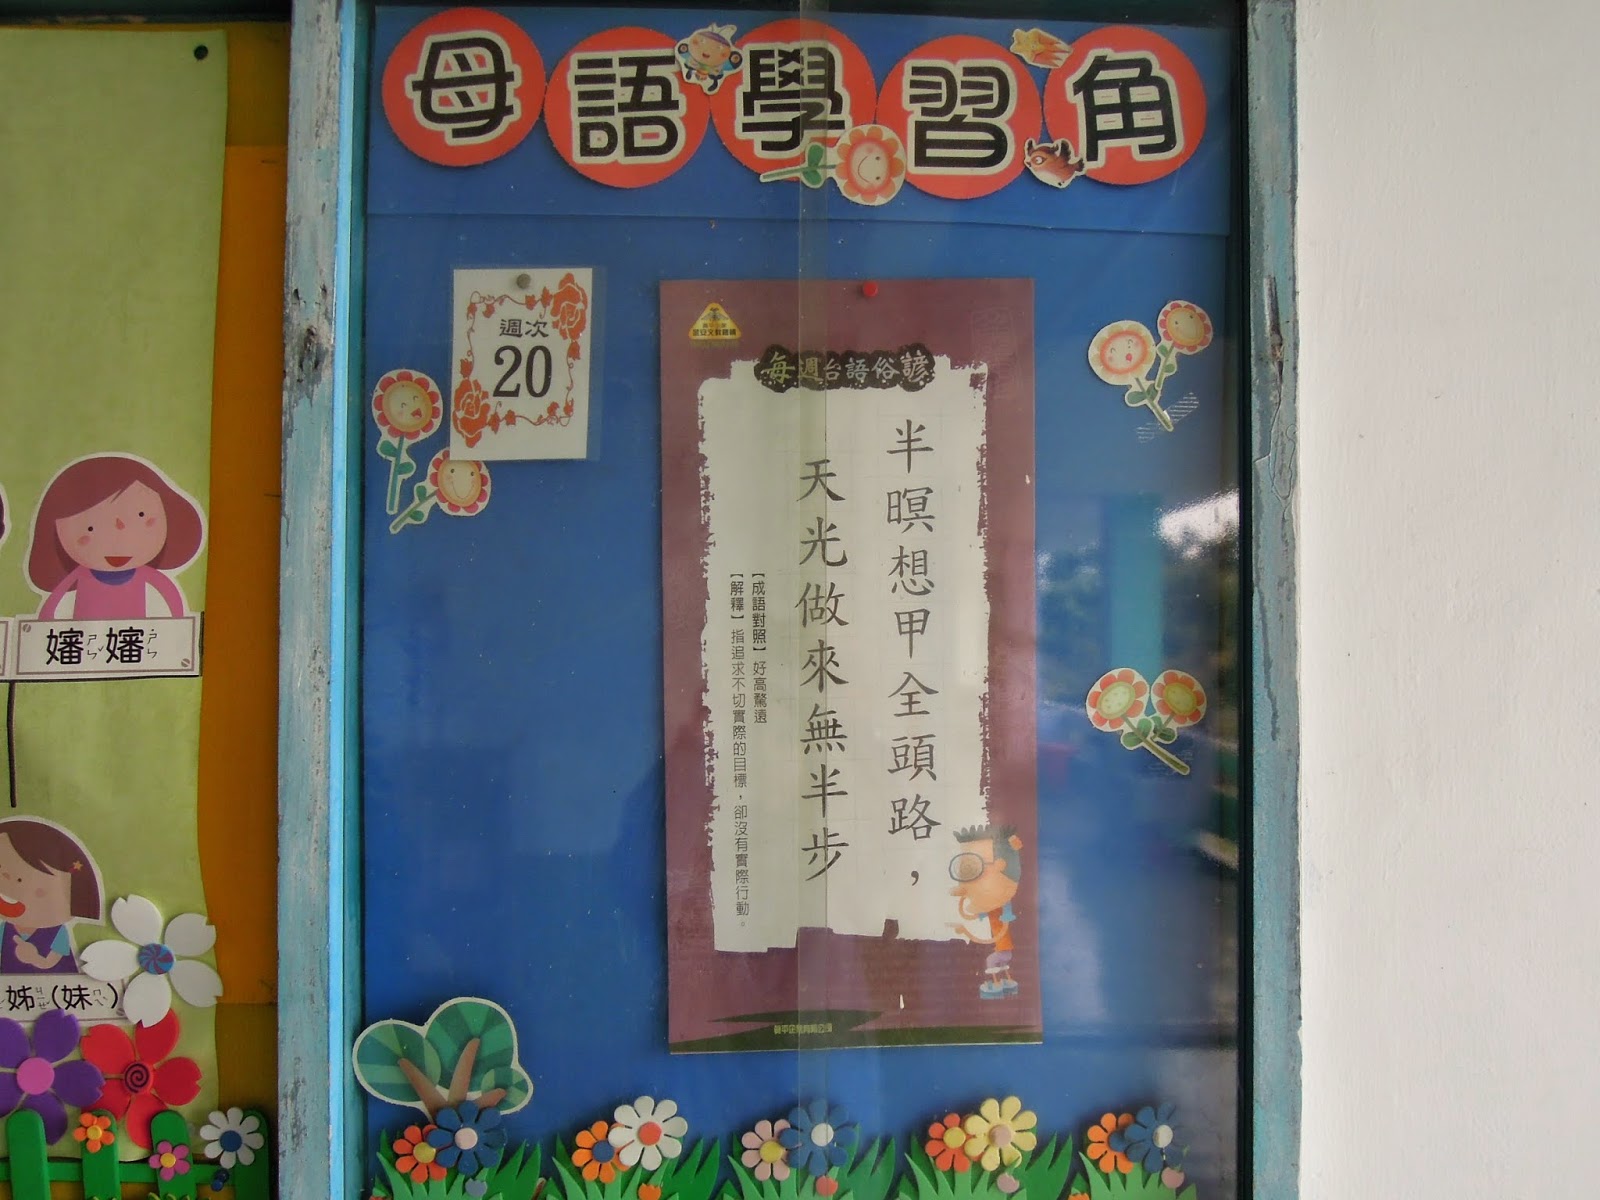 母語學習角
週次
20
每週台語俗諺
半暝想甲全頭路，
天光做來無半步
【成語對照】好高騖遠
【解釋】指追求不切實際的目標，卻沒有實際行動。
嬸ㄕㄣˇ嬸˙ㄕㄣ
姊ㄐㄧㄝ(妹ㄇㄟ)